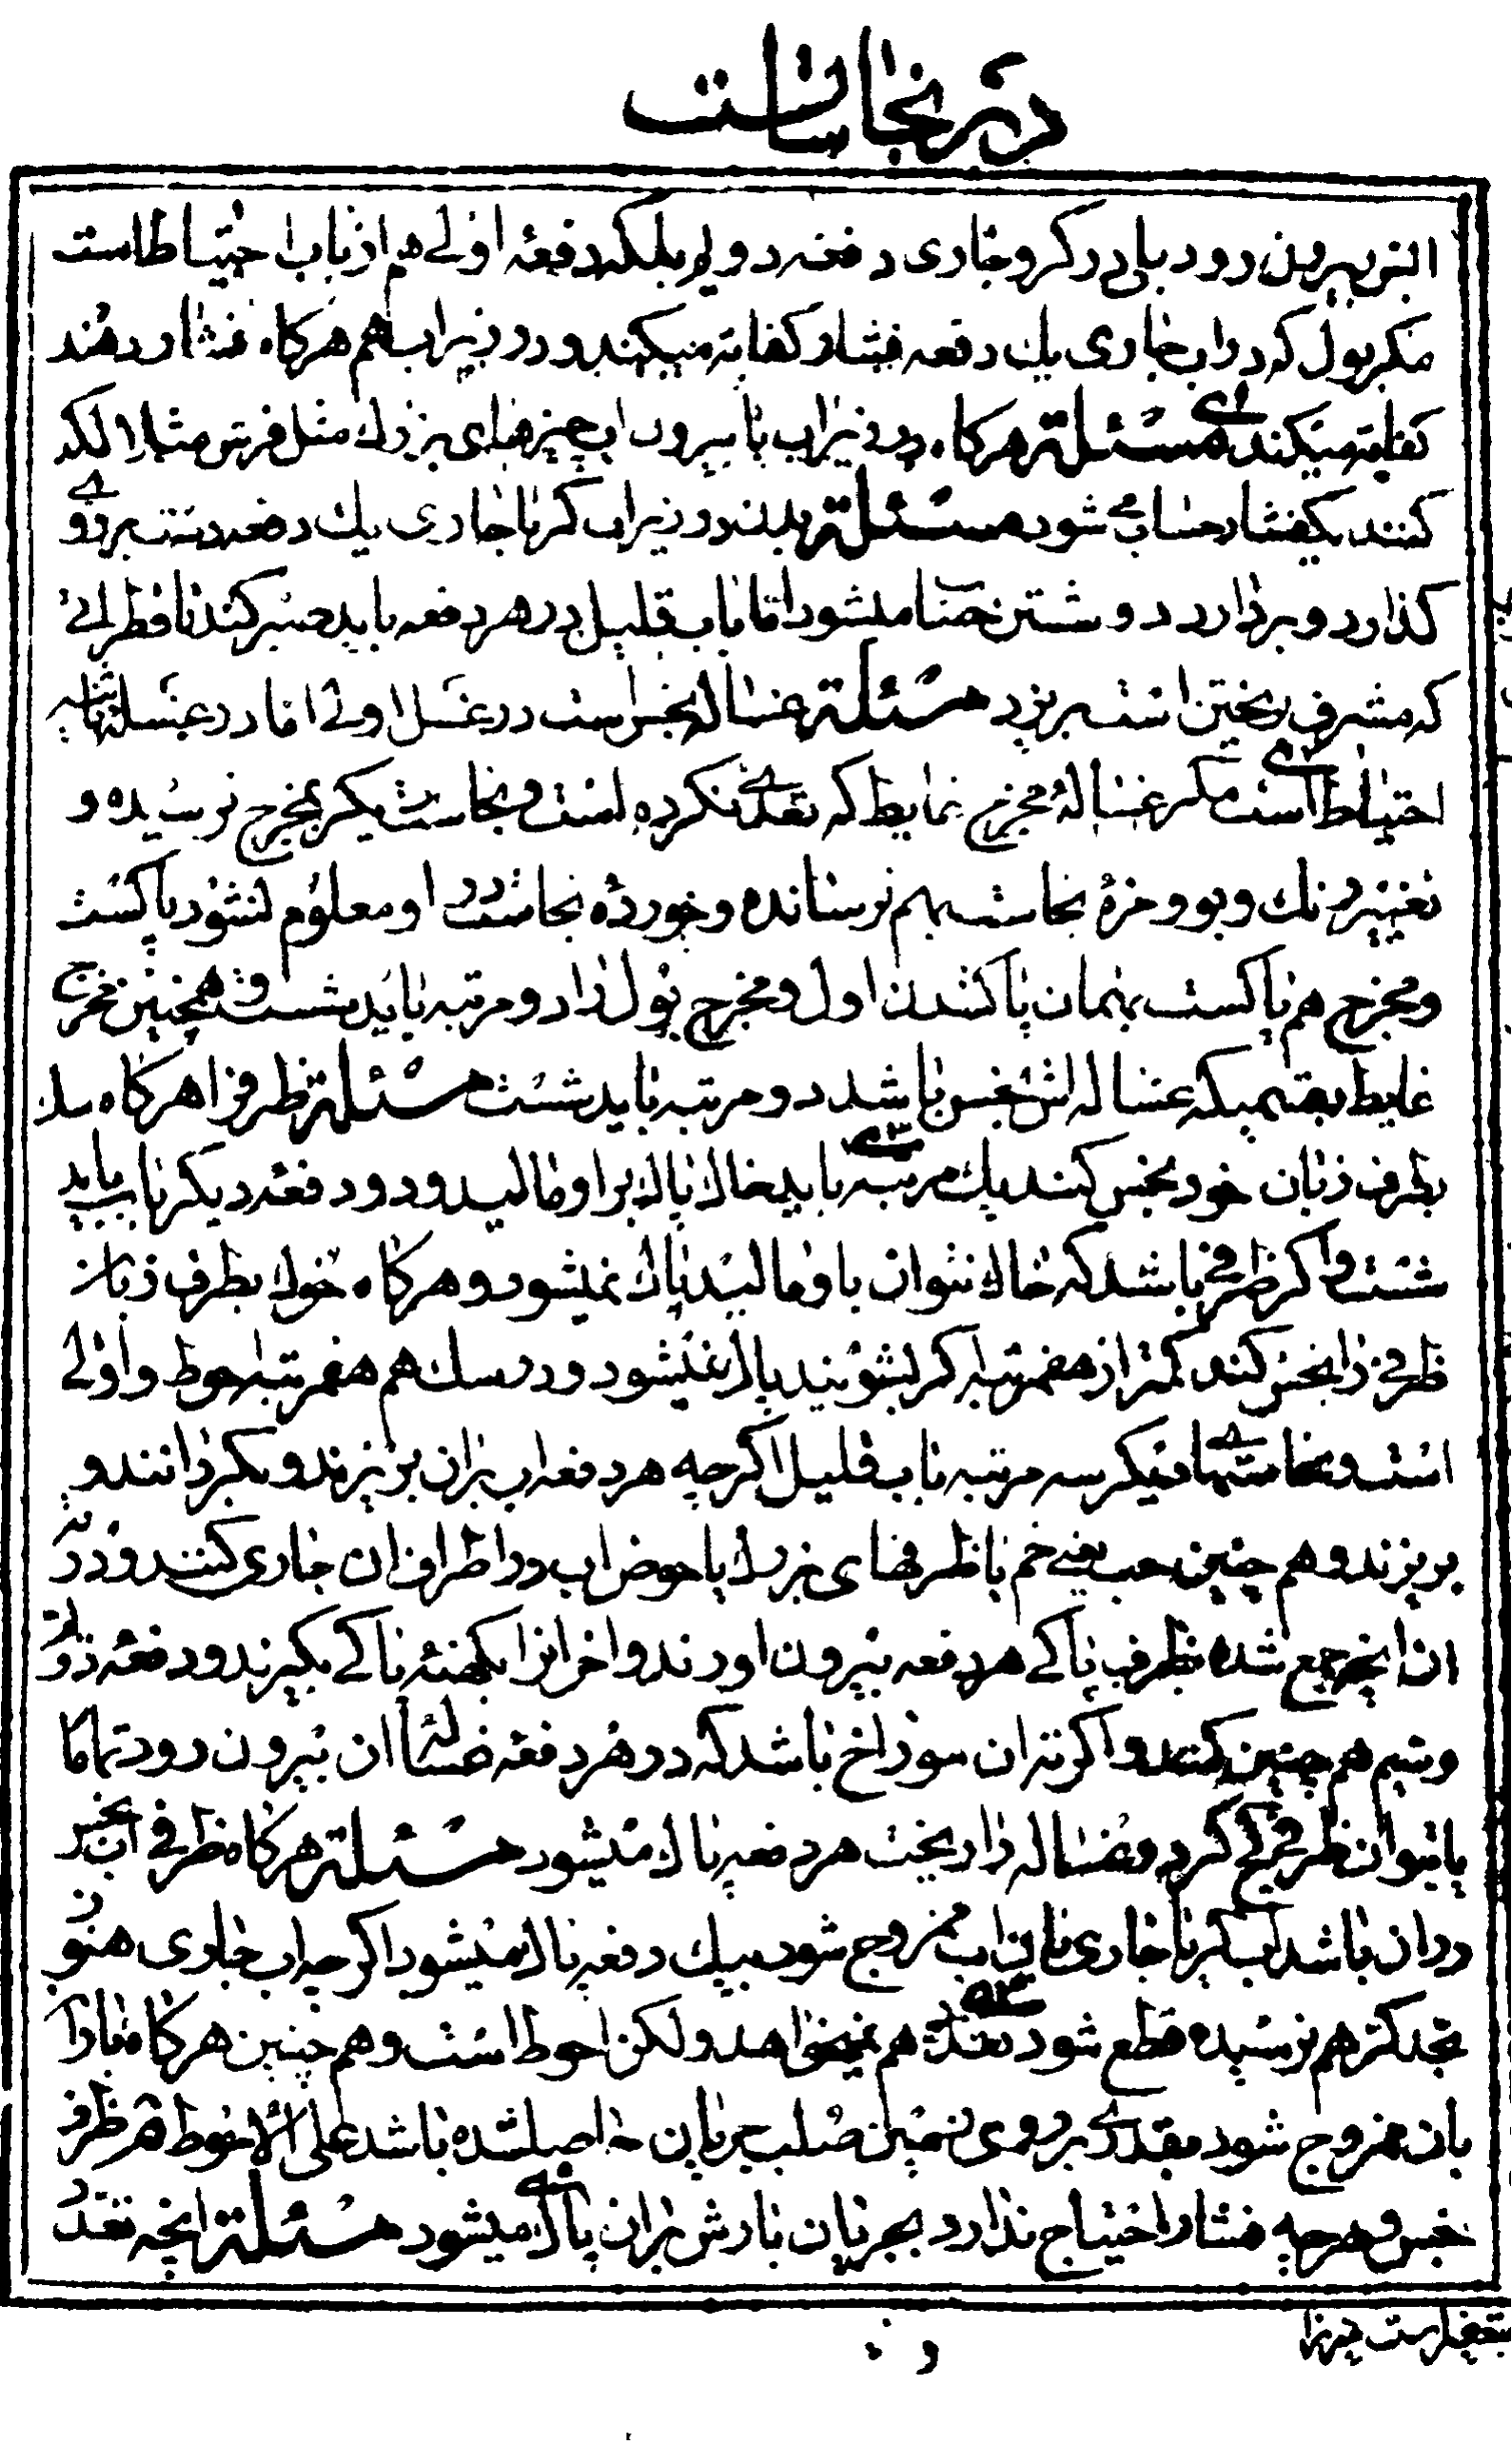 در نجاسات
البش بیرون رود بلی در کر و جاری دفعه دویم بلکه دفعه اولی هم از باب احتیاط است
مگر بول که در اب جاری یک دفعه فشار کفایة میکند و در زیر اب هم هرگاه فشار دهند
کفایة میکند مسئلة هرگاه در زیر اب یا بیرون اب چیزهای بزرک مثل فرش مثلا لکد
کنند یکفشار حساب می شود مسئلة بدن در زیر اب کر یا جاری یک دفعه دست بر او
کذارد و بردارد دو شستن حساب میشود اما باب قلیل در هر دفعه باید صبر کند تا قطرهائی
که مشرف بریختن است بریزد مسئلة غساله نجس است در غسل اولی اما در غسلهای ثانیه
احتیاط است مگر غسالهٔ مخرج غایط که تعدی نکرده است و نجاست دیگر بمخرج نرسیده و
تغییر رنک و بو و مزهٔ نجاست بهم نرسانده و خوردهٔ نجاست در او معلوم نشود پاکست
و مخرج هم پاکست بهمان پاکشدن اول و مخرج بول را دو مرتبه باید شست و همچنین مخرج
غایط بقسمیکه غساله اش نجس باشد دو مرتبه باید شست مسئلة ظرف را هرگاه سک
بطرف زبان خود نجس کند یک مرتبه باید خاک پاک بر او مالید و دو دفعه دیگر باب باید
شست و اگر ظرفی باشد که خاک نتوان باو مالید پاک نمیشود و هرگاه خوک بطرف زبان
ظرفی را نجس کند کمتر از هفمرتبه اگر بشویند پاک نمیشود و در سک هم هفمرتبه احوط و اولی
است و نجاستهای دیگر سه مرتبه باب قلیل اگرچه هر دفعه اب بر ان بریزند و بگردانند و
بریزند و هم چنین حب یعنی خم یا ظرفهای بزرک یا حوض اب در اطراف ان جاری کنند و در ته
ان انچه جمع شده بظرف پاکی هر دفعه بیرون اورند و اخر انرا بکهنه پاکی بگیرند و دفعه دویم
و سیم هم چنین کنند و اگر ته ان سوراخ باشد که در هر دفعه غساله ان بیرون رود تماما
یا بتوان ظرف کج کرد و غساله را ریخت هر دفعه پاک میشود مسئلة هرگاه ظرفی اب نجس
در ان باشد اب کر یا جاری بان اب ممزوج شود بیک دفعه پاک میشود اگرچه اب جاری هنوز
بحد کر هم نرسیده قطع شود تعدد هم نمیخواهد ولکن احوط است و هم چنین هرگاه باران
بان ممزوج شود بقدری بر روی زمین صلب جریان حاصل شده باشد علی الاحوط هر ظرف
نجس و هرچه فشار احتیاج ندارد بجریان بارش بر ان پاک میشود مسئلة انچه تعدد